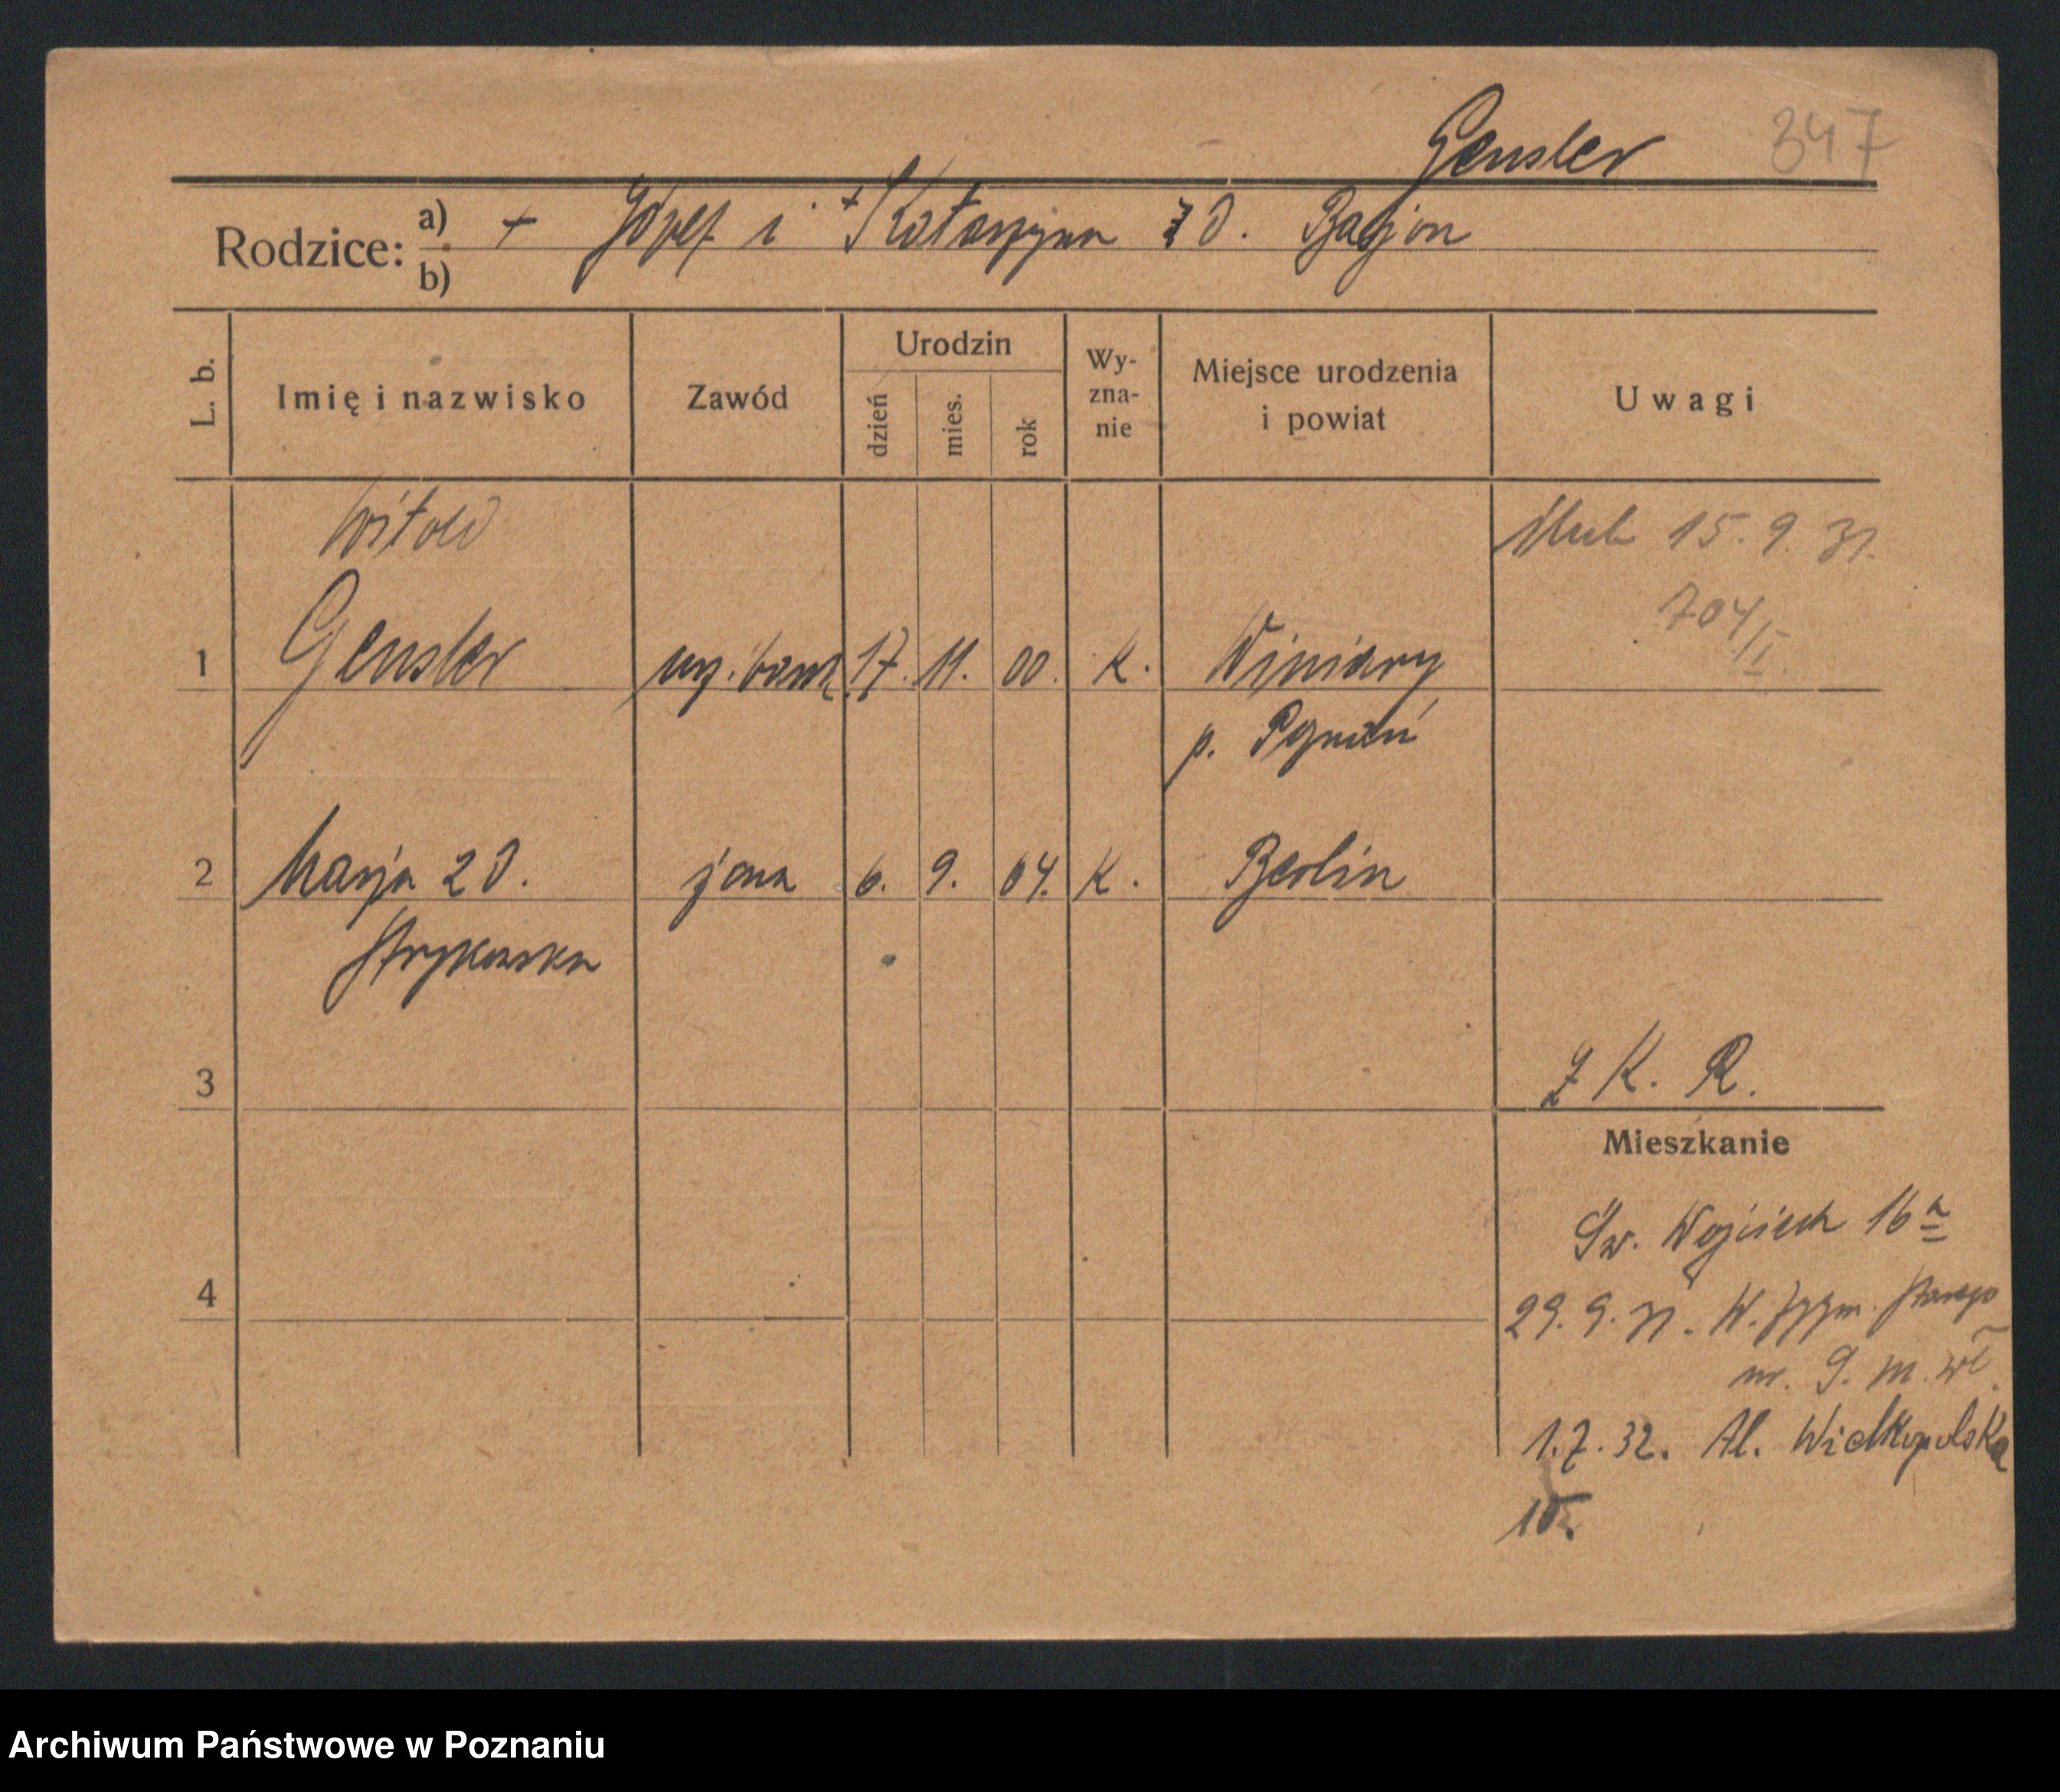 Gensler 347
Rodzice: a) + Józef i + Katarzyna z d.
b)
L. b.
Imię i nazwisko
Zawód
Urodzin
dzień
mies.
rok
Wy-
zna-
nie
Miejsce urodzenia
i powiat
Uwagi
Witold
ślub 15. 9. 31.
704/I.
1 Gensler urz. bank. 17. 11. 00. K. Winiary
p. Poznań
2 Marja z d. żona 6. 9. 04. K. Berlin
Strykowska
3 Z K. R.
Mieszkanie
Św. Wojciech 16 a
4
29. 9. 31. W. Zygm. Starego
nr. 9. m. wł.
1. 7. 32. Al. Wielkopolska
10.
Archiwum Państwowe w Poznaniu